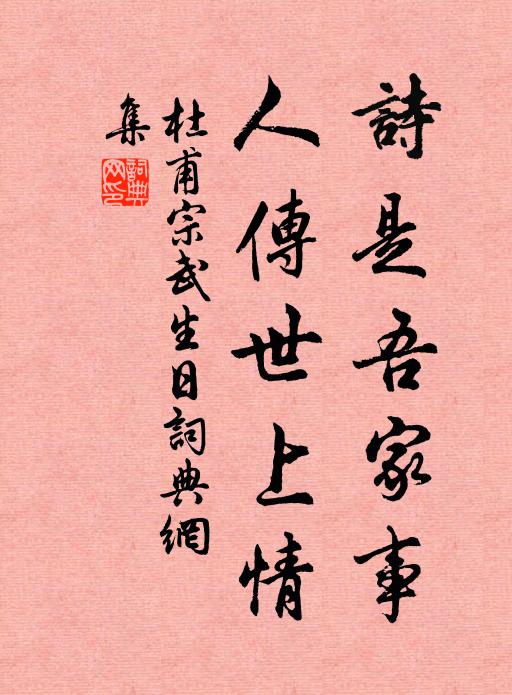 詩是吾家事
人傳世上情
杜甫宗武生日詞典網
集
詞典
网印